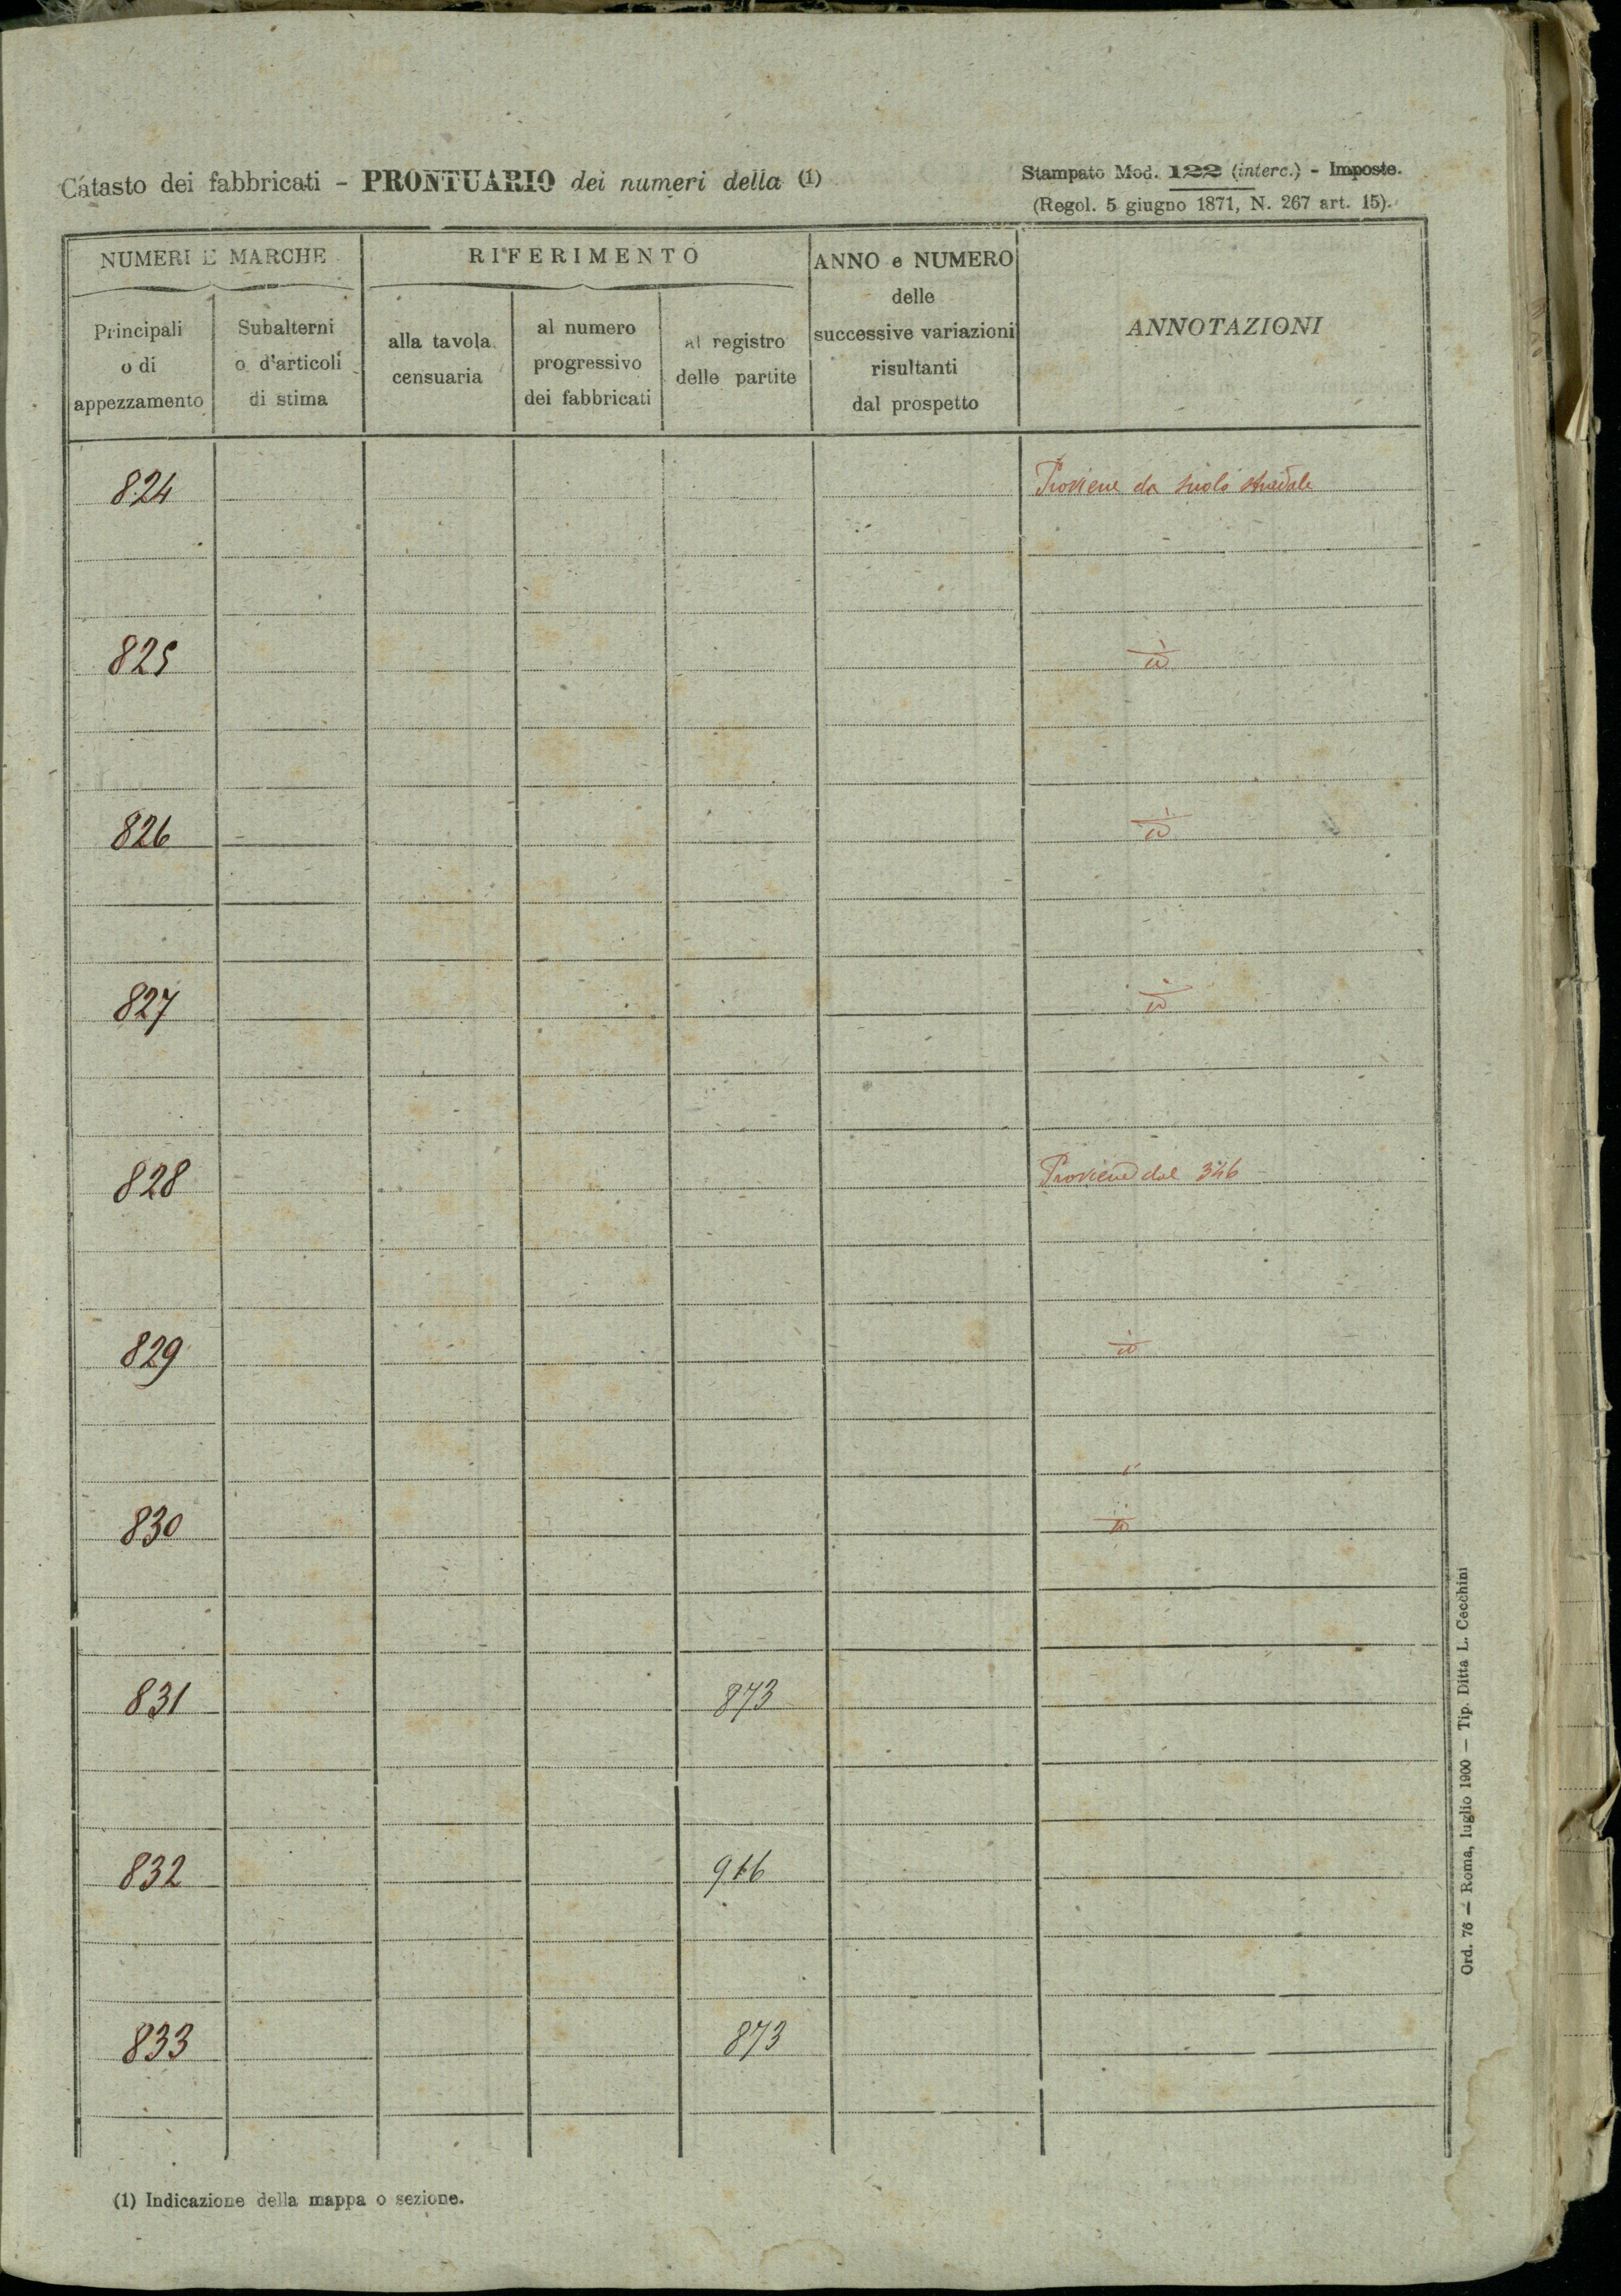 Catasto dei fabbricati - PRONTUARIO dei numeri della (1)
Stampato Mod. 122 (interc.) - Imposte.
(Regol. 5 giugno 1871, N. 267 art. 15).
NUMERI E MARCHE
RIFERIMENTO
ANNO e NUMERO
delle
successive variazioni
risultanti
dal prospetto
ANNOTAZIONI
Principali
o di
appezzamento
Subalterni
o d'articoli
di stima
alla tavola
censuaria
al numero
progressivo
dei fabbricati
al registro
delle partite
824 Proviene da suolo stradale
825
826
827
828 Proviene dal 346
829
830
831 873
832 916
833 873
(1) Indicazione della mappa o sezione.
Ord. 76 — Roma, luglio 1900 — Tip. Ditta L. Cecchini